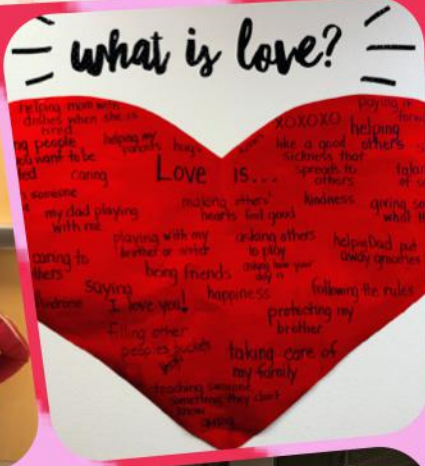 what is love?
helping mom with
dishes when she is
tired
helping my
parents
hugs
XOXOXO
paying it
helping
others
people
you want to be
caring
Love is...
like a good
sickness that
spreads to
others
someone
my dad playing
with me
making others'
hearts feel good
kindness
giving
playing with my
brother or sister
asking others
to play
helping Dad put
away groceries
caring to
being friends
asking how your
day is
saying
I love you!
happiness
following the rules
protecting my
brother
filling other
peoples buckets
taking care of
my family
teaching someone
something they don't
know
giving